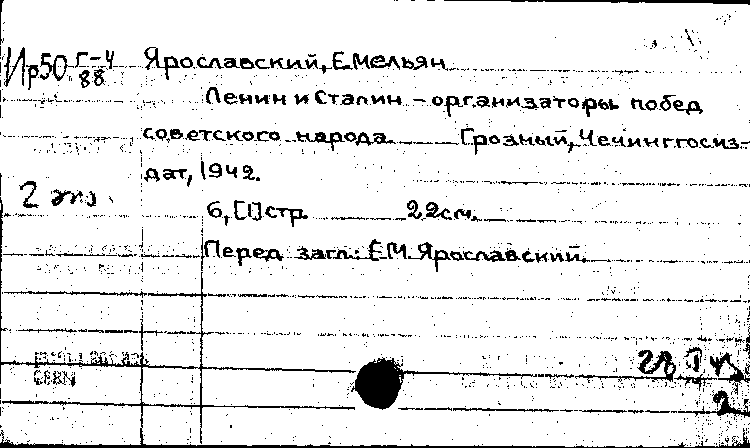 Ир50 Г-4 Ярославский, Емельян
88
Ленин и Сталин - организаторы побед
советского народа. Грозный, Чечинггосиз-
дат, 1942.
2 экз.
6, [1] стр. 22см.
Перед загл.: ЕМ. Ярославский.
28
2